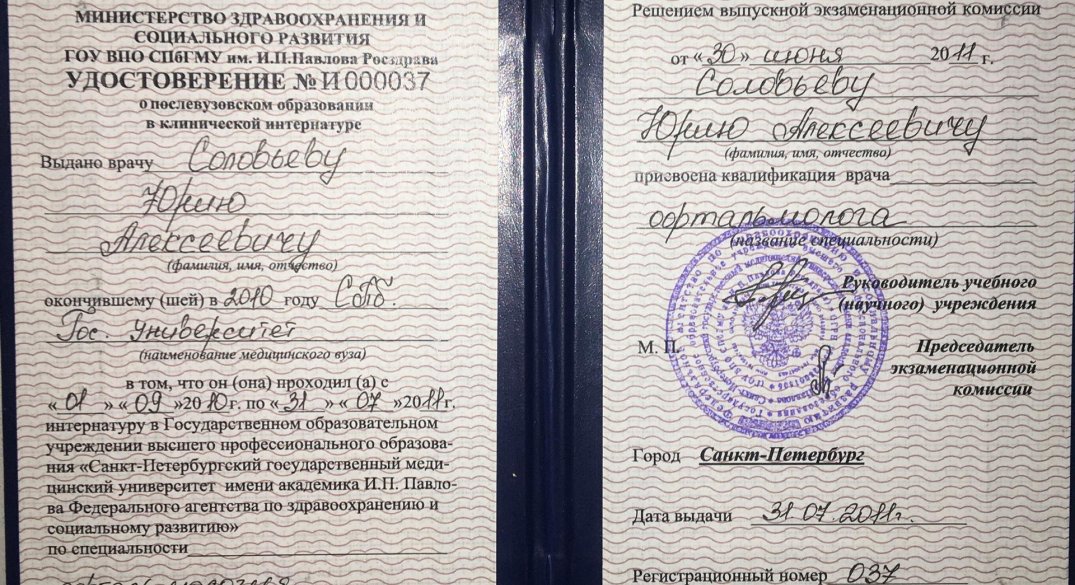 МИНИСТЕРСТВО ЗДРАВООХРАНЕНИЯ И
СОЦИАЛЬНОГО РАЗВИТИЯ
ГОУ ВПО СПбГМУ им. И.П.Павлова Росздрава
УДОСТОВЕРЕНИЕ № И 000037
о послевузовском образовании
в клинической интернатуре
Выдано врачу Соловьеву
Юрию
Алексеевичу
(фамилия, имя, отчество)
окончившему (шей) в 2010 году СПб.
Гос. университет
(наименование медицинского вуза)
в том, что он (она) проходил (а) с
«01» «09»2010г. по «31» «07»2011г.
интернатуру в Государственном образовательном
учреждении высшего профессионального образова-
ния «Санкт-Петербургский государственный меди-
цинский университет имени академика И.П. Павло-
ва Федерального агентства по здравоохранению и
социальному развитию»
по специальности
Решением выпускной экзаменационной комиссии
от «30» июня 2011 г.
Соловьеву
Юрию Алексеевичу
(фамилия, имя, отчество)
присвоена квалификация врача
офтальмолога
(название специальности)
Руководитель учебного
(научного) учреждения
М. П.
Председатель
экзаменационной
комиссии
Город Санкт-Петербург
Дата выдачи 31.07.2011г.
Регистрационный номер 037